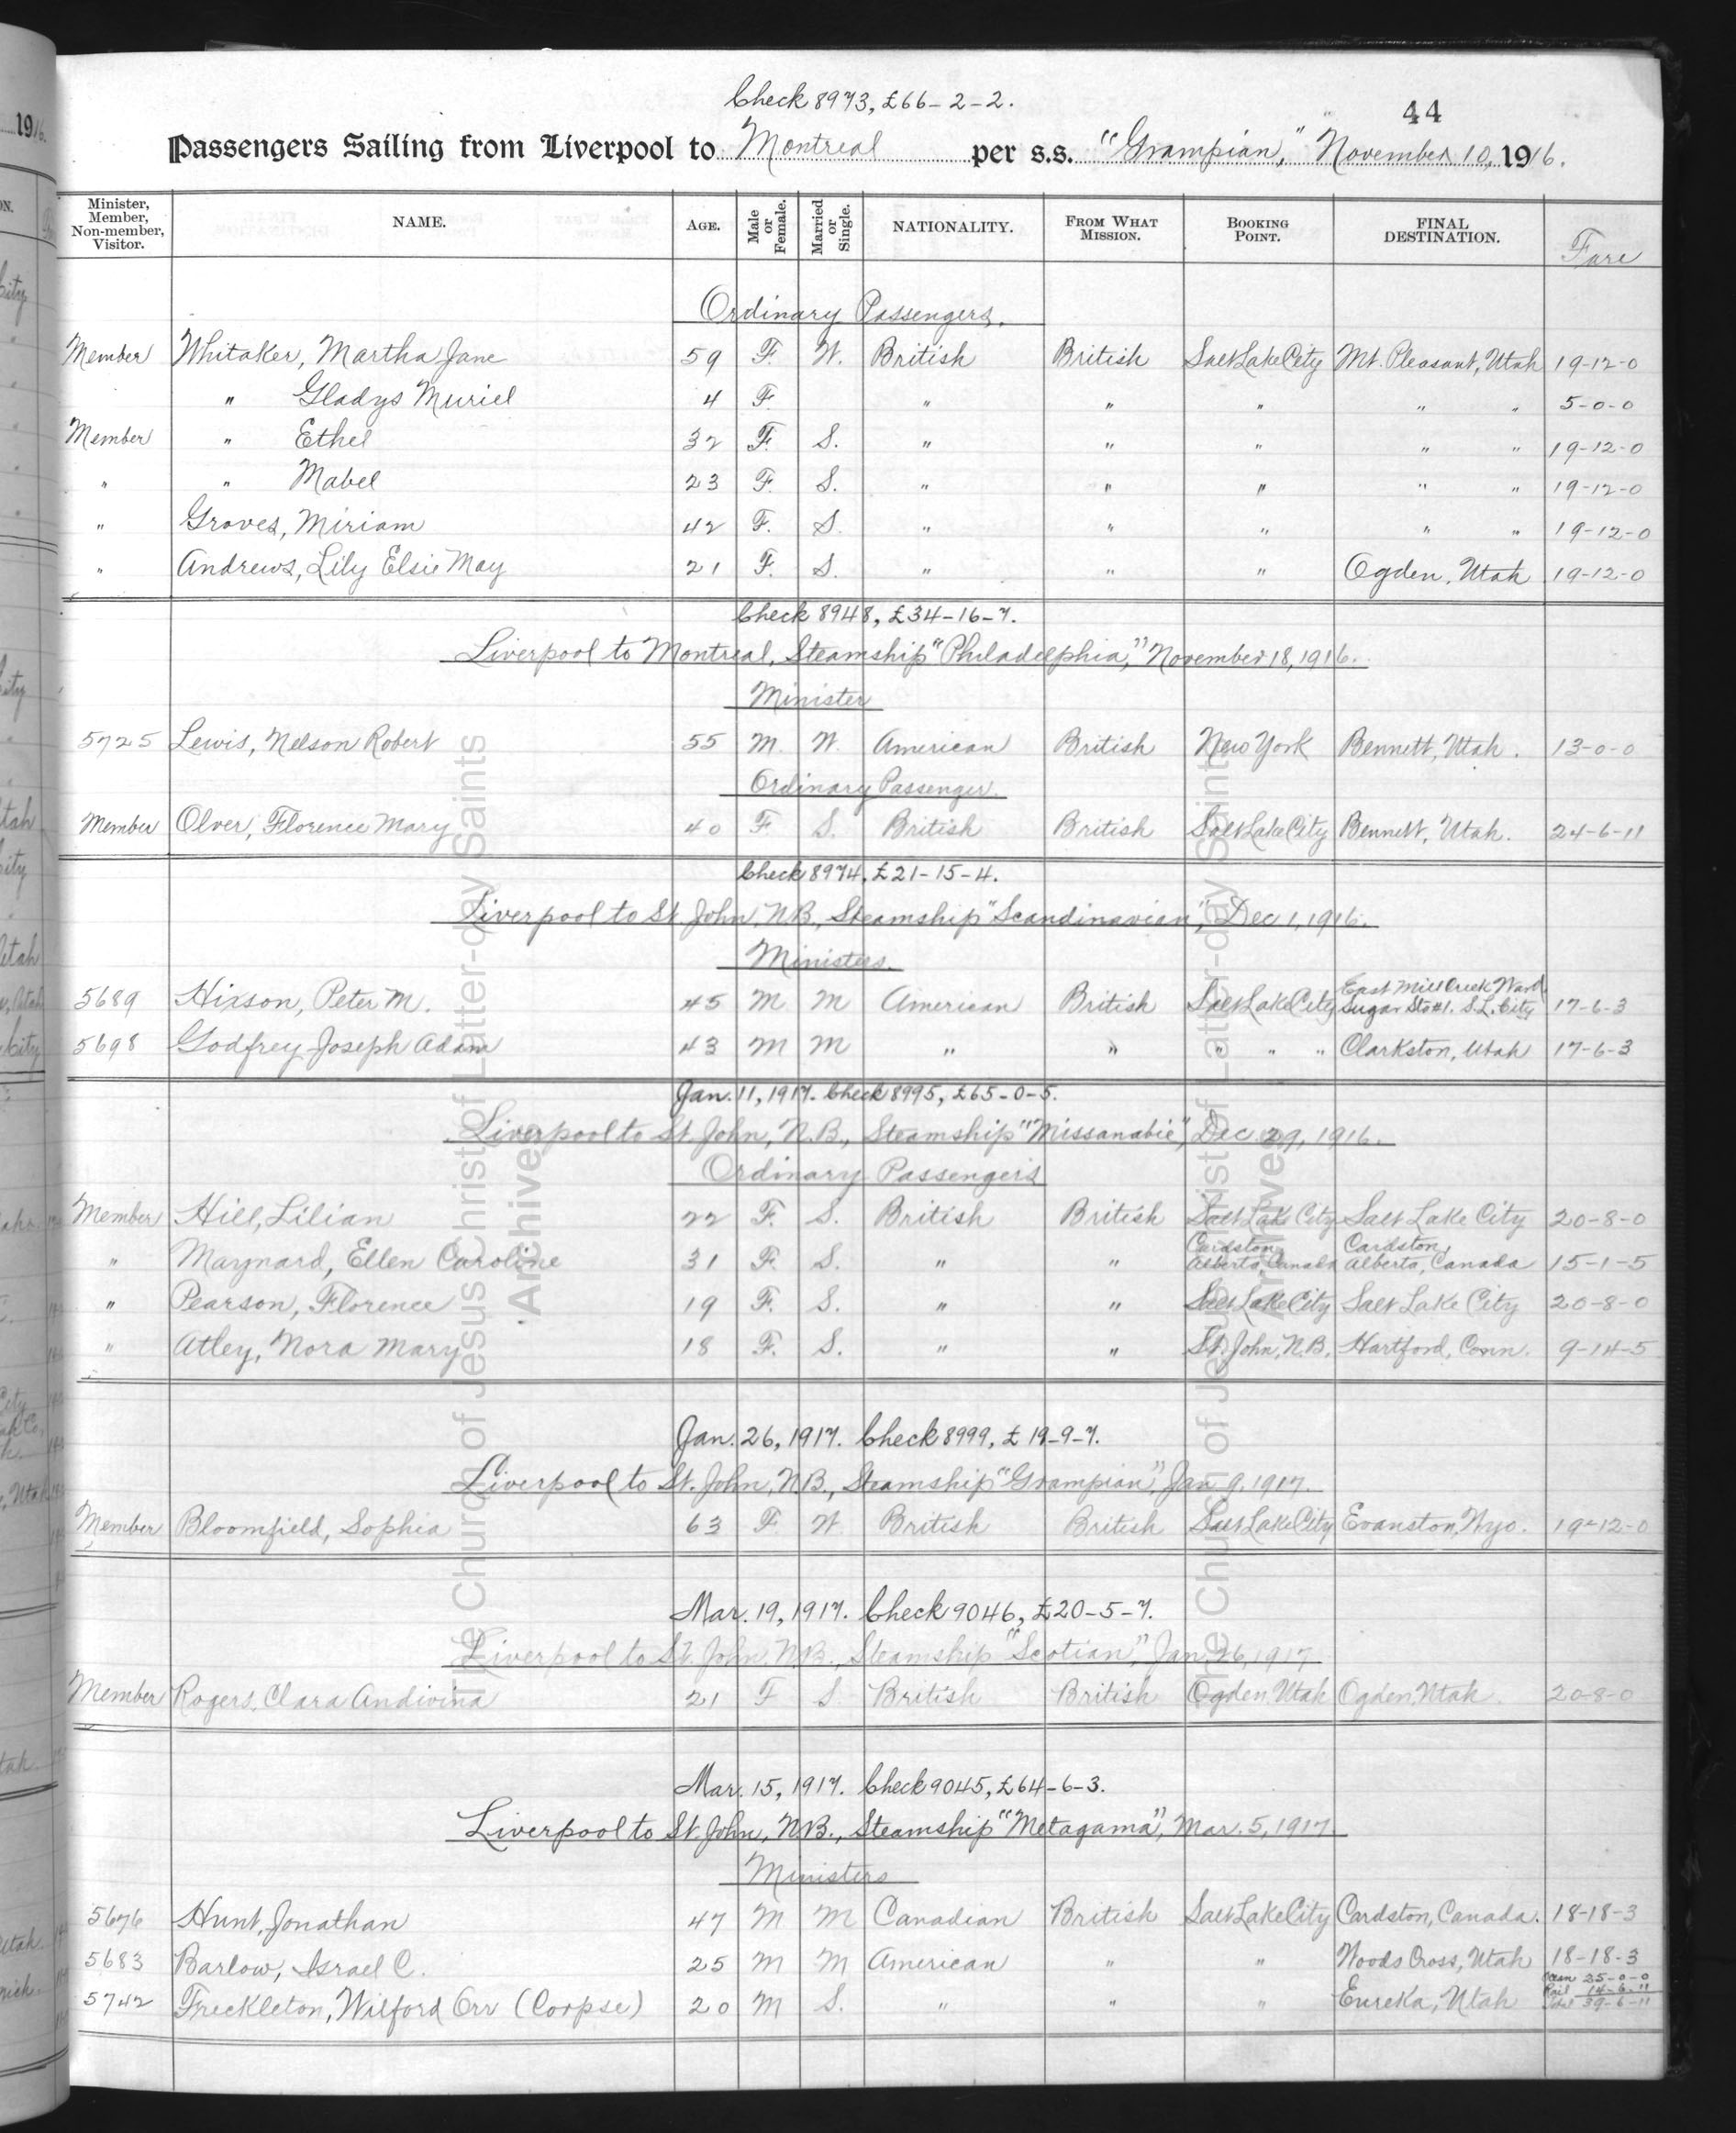 Check 8973, £66-2-2.
44
Passengers Sailing from Liverpool to Montreal per s.s. "Grampian," November 10, 1916.
Minister, Member, Non-member, Visitor. NAME. AGE. Male or Female. Married or Single. NATIONALITY. FROM WHAT MISSION. BOOKING POINT. FINAL DESTINATION. Fare
Ordinary Passengers.
Member Whitaker, Martha Jane 59 F. W. British British Salt Lake City Mt. Pleasant, Utah 19-12-0
" Gladys Muriel 4 F. " " " " " 5-0-0
Member " Ethel 32 F. S. " " " " " 19-12-0
" " Mabel 23 F. S. " " " " " 19-12-0
" Groves, Miriam 42 F. S. " " " " " 19-12-0
" Andrews, Lily Elsie May 21 F. S. " " " Ogden, Utah 19-12-0
Check 8948, £34-16-7.
Liverpool to Montreal, Steamship "Philadelphia," November 18, 1916.
Minister
5725 Lewis, Nelson Robert 55 M. W. American British New York Bennett, Utah. 13-0-0
Ordinary Passenger.
Member Olver, Florence Mary 40 F S. British British Salt Lake City Bennett, Utah. 24-6-11
Check 8974, £21-15-4.
Liverpool to St. John, N.B., Steamship "Scandinavian", Dec 1, 1916.
Ministers.
5689 Hixson, Peter M. 45 M M American British Salt Lake City East Mill Creek Ward. Sugar Sta#1. S.L. City 17-6-3
5698 Godfrey Joseph Adam 43 M M " " " " " Clarkston, Utah 17-6-3
Jan. 11, 1917. Check 8995, £65-0-5.
Liverpool to St. John, N.B., Steamship "Missanabie", Dec 29, 1916.
Ordinary Passengers
Member Hill, Lilian 22 F. S. British British Salt Lake City Salt Lake City 20-8-0
" Maynard, Ellen Caroline 31 F. S. " " Cardston, Alberta, Canada Cardston, Alberta, Canada 15-1-5
" Pearson, Florence 19 F. S. " " Salt Lake City Salt Lake City 20-8-0
" Atley, Nora Mary 18 F. S. " " St. John, N.B. Hartford, Conn. 9-14-5
Jan. 26, 1917. Check 8999, £19-9-7.
Liverpool to St. John, N.B., Steamship "Grampian", Jan 9, 1917.
Member Bloomfield, Sophia 63 F W British British Salt Lake City Evanston, Wyo. 19-12-0
Mar. 19, 1917. Check 9046, £20-5-7.
Liverpool to St. John, N.B., Steamship "Scotian", Jan 26, 1917
Member Rogers, Clara Andivina 21 F S British British Ogden, Utah Ogden, Utah. 20-8-0
Mar. 15, 1917. Check 9045, £64-6-3.
Liverpool to St. John, N.B., Steamship "Metagama", Mar. 5, 1917
Ministers
5676 Hunt, Jonathan 47 M M Canadian British Salt Lake City Cardston, Canada. 18-18-3
5683 Barlow, Israel C. 25 M M American " " Woods Cross, Utah 18-18-3
5742 Freckleton, Wilford Orr (Corpse) 20 M S. " " " Eureka, Utah
25-0-0
Rail 14-6-11
Total 39-6-11
The Church of Jesus Christ of Latter-day Saints
Archives
The Church of Jesus Christ of Latter-day Saints
Archives